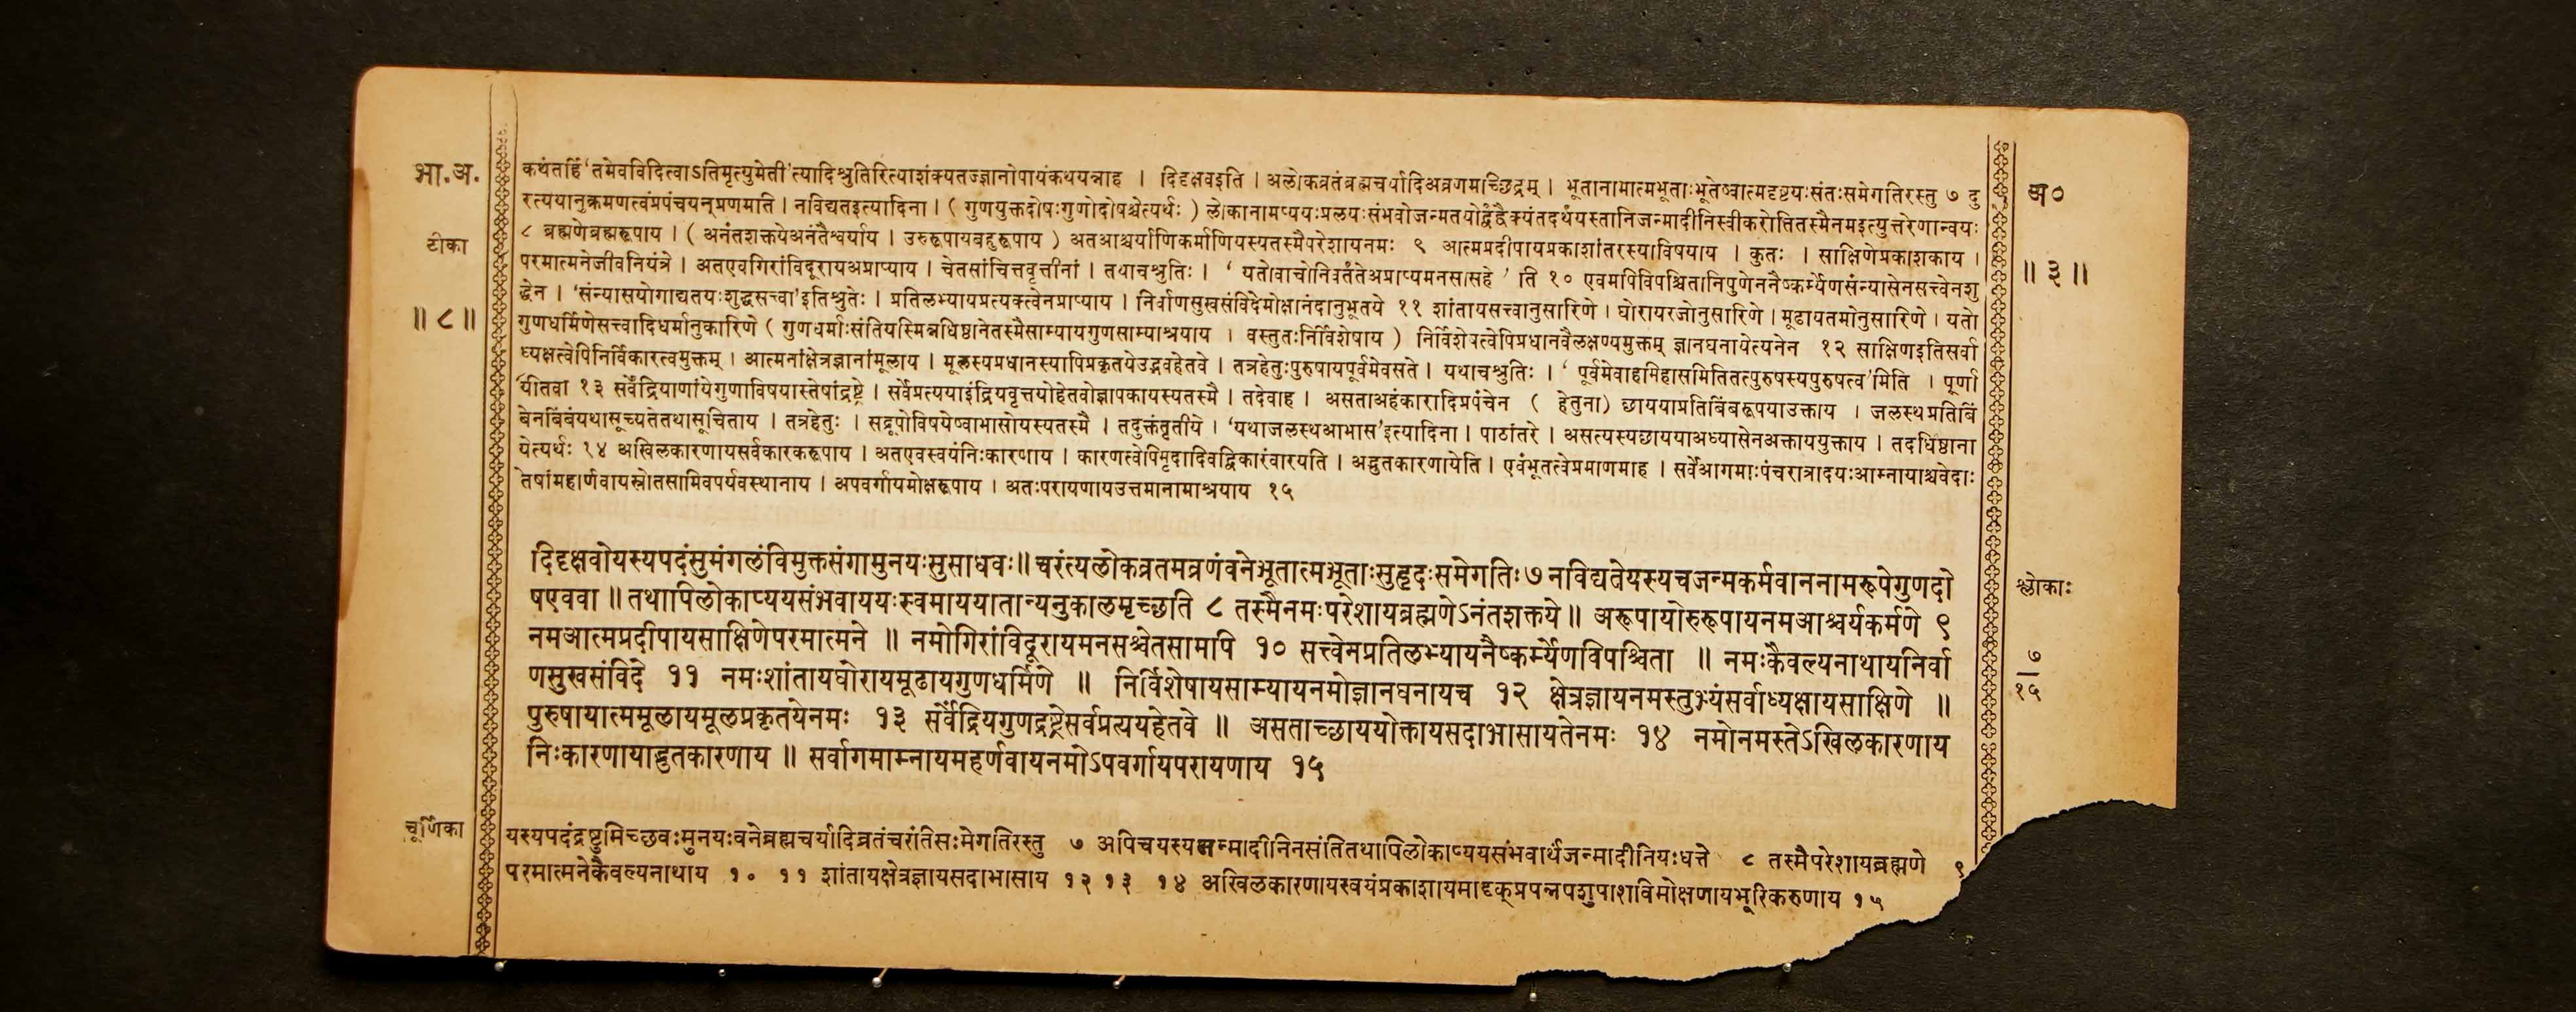 भा.अ.
टीका
॥ ८ ॥
कथंतर्हि‘तमेवविदित्वाऽतिमृत्युमेती’त्यादिश्रुतिरित्याशंक्यतज्ज्ञानोपायंकथयन्नाह । दिदृक्षवइति । अलोकव्रतंब्रह्मचर्यादिअव्रणमच्छिद्रम् । भूतानामात्मभूताःभूतेष्वात्मदृष्टयःसंतःसमेगतिरस्तु ७ दु
रत्ययानुक्रमणत्वंप्रपंचयन्प्रणमति । नविद्यतइत्यादिना । ( गुणयुक्तदोषःगुणोदोषश्चेत्यर्थः ) लोकानामप्ययःप्रलयःसंभवोजन्मतयोर्द्वंद्वैक्यंतदर्थंयस्तानिजन्मादीनिस्वीकरोतितस्मैनमइत्युत्तरेणान्वयः
८ ब्रह्मणेब्रह्मरूपाय । ( अनंतशक्तयेअनंतैश्वर्याय । उरुरूपायबहुरूपाय ) अतआश्चर्याणिकर्माणियस्यतस्मैपरेशायनमः ९ आत्मप्रदीपायप्रकाशांतरस्याविषयाय । कुतः । साक्षिणेप्रकाशकाय ।
परमात्मनेजीवनियंत्रे । अतएवगिरांविदूरायअप्राप्याय । चेतसांचित्तवृत्तीनां । तथाचश्रुतिः । ‘ यतोवाचोनिवर्तंतेअप्राप्यमनसासहे ’ ति १० एवमपिविपश्चितानिपुणेननैष्कर्म्येणसंन्यासेनसत्त्वेनशु
द्धेन । ‘संन्यासयोगाद्यतयःशुद्धसत्त्वा’इतिश्रुतेः । प्रतिलभ्यायप्रत्यक्त्वेनप्राप्याय । निर्वाणसुखसंविदेमोक्षानंदानुभूतये ११ शांतायसत्त्वानुसारिणे । घोरायरजोनुसारिणे । मूढायतमोनुसारिणे । यतो
गुणधर्मिणेसत्त्वादिधर्मानुकारिणे ( गुणधर्माःसंतियस्मिन्नधिष्ठानेतस्मैसाम्यायगुणसाम्याश्रयाय । वस्तुतःनिर्विशेषाय ) निर्विशेषत्वेपिप्रधानवैलक्षण्यमुक्तम् ज्ञानघनायेत्यनेन १२ साक्षिणइतिसर्वा
ध्यक्षत्वेपिनिर्विकारत्वमुक्तम् । आत्मनांक्षेत्रज्ञानांमूलाय । मूलस्यप्रधानस्यापिप्रकृतयेउद्भवहेतवे । तत्रहेतुःपुरुषायपूर्वमेवसते । यथाचश्रुतिः । ‘ पूर्वमेवाहमिहासमितितत्पुरुषस्यपुरुषत्व’मिति । पूर्णा
यीतवा १३ सर्वेंद्रियाणांयेगुणाविषयास्तेषांद्रष्ट्रे । सर्वेप्रत्ययाइंद्रियवृत्तयोहेतवोज्ञापकायस्यतस्मै । तदेवाह । असताअहंकारादिप्रपंचेन ( हेतुना) छाययाप्रतिबिंबरूपयाउक्ताय । जलस्थप्रतिबिं
बेनबिंबंयथासूच्यतेतथासूचिताय । तत्रहेतुः । सद्रूपोविषयेष्वाभासोयस्यतस्मै । तदुक्तंतृतीये । ‘यथाजलस्थआभास’इत्यादिना । पाठांतरे । असत्यस्यछाययाअध्यासेनअक्ताययुक्ताय । तदधिष्ठाना
येत्यर्थः १४ अखिलकारणायसर्वकारकरूपाय । अतएवस्वयंनिःकारणाय । कारणत्वेपिमृदादिवद्विकारंवारयति । अद्भुतकारणायेति । एवंभूतत्वेप्रमाणमाह । सर्वेआगमाःपंचरात्रादयःआम्नायाश्चवेदाः
तेषांमहार्णवायस्रोतसामिवपर्यवस्थानाय । अपवर्गायमोक्षरूपाय । अतःपरायणायउत्तमानामाश्रयाय १५
अ०
॥ ३ ॥
दिदृक्षवोयस्यपदंसुमंगलंविमुक्तसंगामुनयःसुसाधवः॥ चरंत्यलोकव्रतमव्रणंवनेभूतात्मभूताःसुहृदःसमेगतिः ७ नविद्यतेयस्यचजन्मकर्मवाननामरूपेगुणदो
षएववा ॥ तथापिलोकाप्ययसंभवाययःस्वमाययातान्यनुकालमृच्छति ८ तस्मैनमःपरेशायब्रह्मणेऽनंतशक्तये ॥ अरूपायोरुरूपायनमआश्चर्यकर्मणे ९
नमआत्मप्रदीपायसाक्षिणेपरमात्मने ॥ नमोगिरांविदूरायमनसश्चेतसामपि १० सत्त्वेनप्रतिलभ्यायनैष्कर्म्येणविपश्चिता ॥ नमःकैवल्यनाथायनिर्वा
णसुखसंविदे ११ नमःशांतायघोरायमूढायगुणधर्मिणे ॥ निर्विशेषायसाम्यायनमोज्ञानघनायच १२ क्षेत्रज्ञायनमस्तुभ्यंसर्वाध्यक्षायसाक्षिणे ॥
पुरुषायात्ममूलायमूलप्रकृतयेनमः १३ सर्वेंद्रियगुणद्रष्ट्रेसर्वप्रत्ययहेतवे ॥ असताच्छाययोक्तायसदाभासायतेनमः १४ नमोनमस्तेऽखिलकारणाय
निःकारणायाद्भुतकारणाय ॥ सर्वागमाम्नायमहर्णवायनमोऽपवर्गायपरायणाय १५
श्लोकाः
७
१५
चूर्णिका
यस्यपदंद्रष्टुमिच्छवःमुनयःवनेब्रह्मचर्यादिव्रतंचरंतिसःमेगतिरस्तु ७ अपिचयस्यजन्मादीनिनसंतितथापिलोकाप्ययसंभवार्थंजन्मादीनियःधत्ते ८ तस्मैपरेशायब्रह्मणे ९
परमात्मनेकैवल्यनाथाय १० ११ शांतायक्षेत्रज्ञायसदाभासाय १२ १३ १४ अखिलकारणायस्वयंप्रकाशायमादृक्प्रपन्नपशुपाशविमोक्षणायभूरिकरुणाय १५